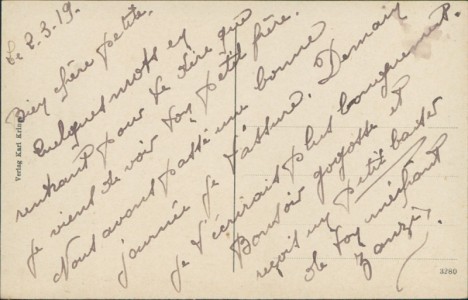 Le 2.3.19.
Bien chère petite.
Quelques mots en
rentrant pour te dire que
je viens de voir ton petit frère.
Nous avons passé une bonne
journée je t'assure. Demain
je t'écrirais plus longuement.
Bonsoir gogosse et
reçois un petit baiser
de ton méchant
Zanzi
Verlag Karl
3780